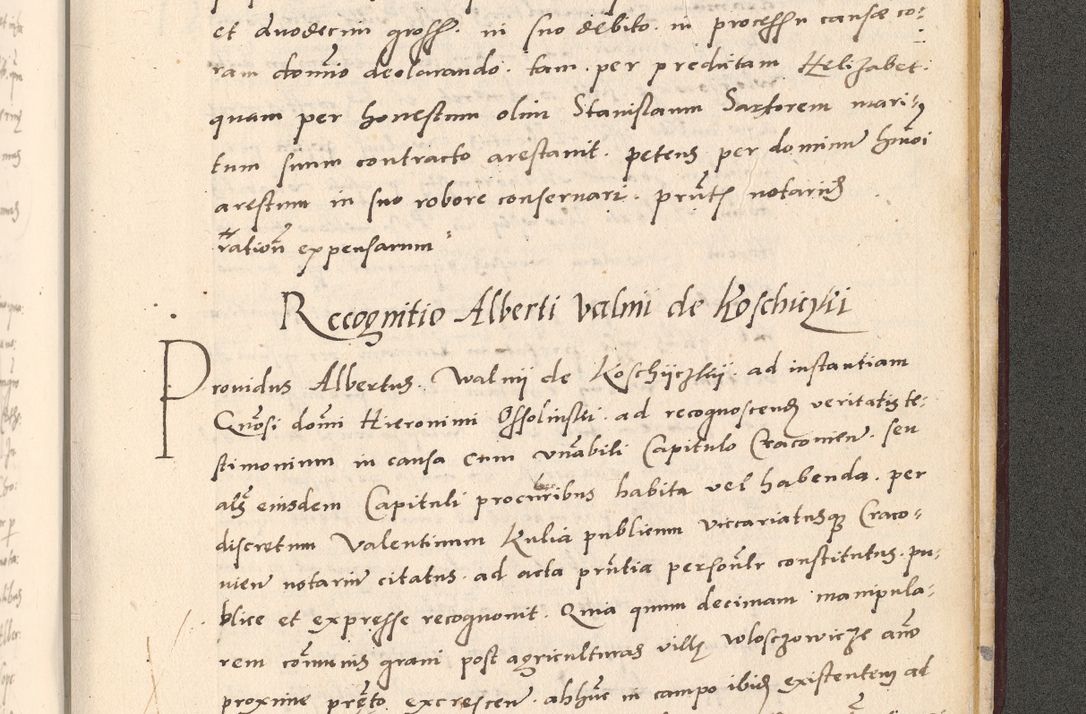 et duodecim gross. in suo debito. in processu causæ co-
ram domĩo declarando. tam. per predictam Helizabet.
quam per honestum olim Stanislaum Sartorem mari-
tum suum contracto arestavit. petens per dominũ hmõi
arestum in suo robore conservari. prñtȩ notariȩ
ration̄ expensarum
Recognitio Alberti Valnii de Koschiczki
Providus Albertus. Walnij de Koschijczkij. ad instantiam
Gnõsi domĩ Hieronimi Ossolinskii. ad recognoscendȩ veritatis te-
stimonium in causa cum vnãbili Capitulo Cracovien̄. seu
alȩ eiusdem Capituli procuribus habita vel habenda. per
discretum Valentinum Kulia publicum viccariatusqȝ Craco-
vien̄ notariũ citatus. ad acta prñtia persoñlr constitutus. pu-
blice et expresse recognovit. Quia quum decimam manipula-
rem cõmunis grani post agriculturas villȩ Wloszowicze año
proxime preȓto excrescen̄. abhũc in campo ibidȩ existentem ad